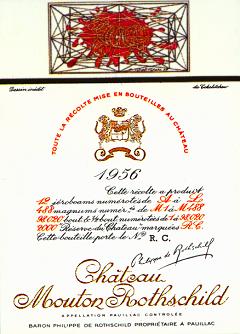 Dessin inédit de Tchelitchew
TOUTE LA RÉCOLTE MISE EN BOUTEILLES AU CHÂTEAU
1956
Cette récolte a produit
12 jéroboams numérotés de A à L
488 magnums numér. de M 1 à M 488
bout. & ½ bout. numérotées de 1 à
2000 Réserve du Château marquées R.C.
Cette bouteille porte le No R. C.
Philippe de Rothschild
Château
Mouton Rothschild
APPELLATION PAUILLAC CONTROLÉE
BARON PHILIPPE DE ROTHSCHILD PROPRIÉTAIRE A PAUILLAC